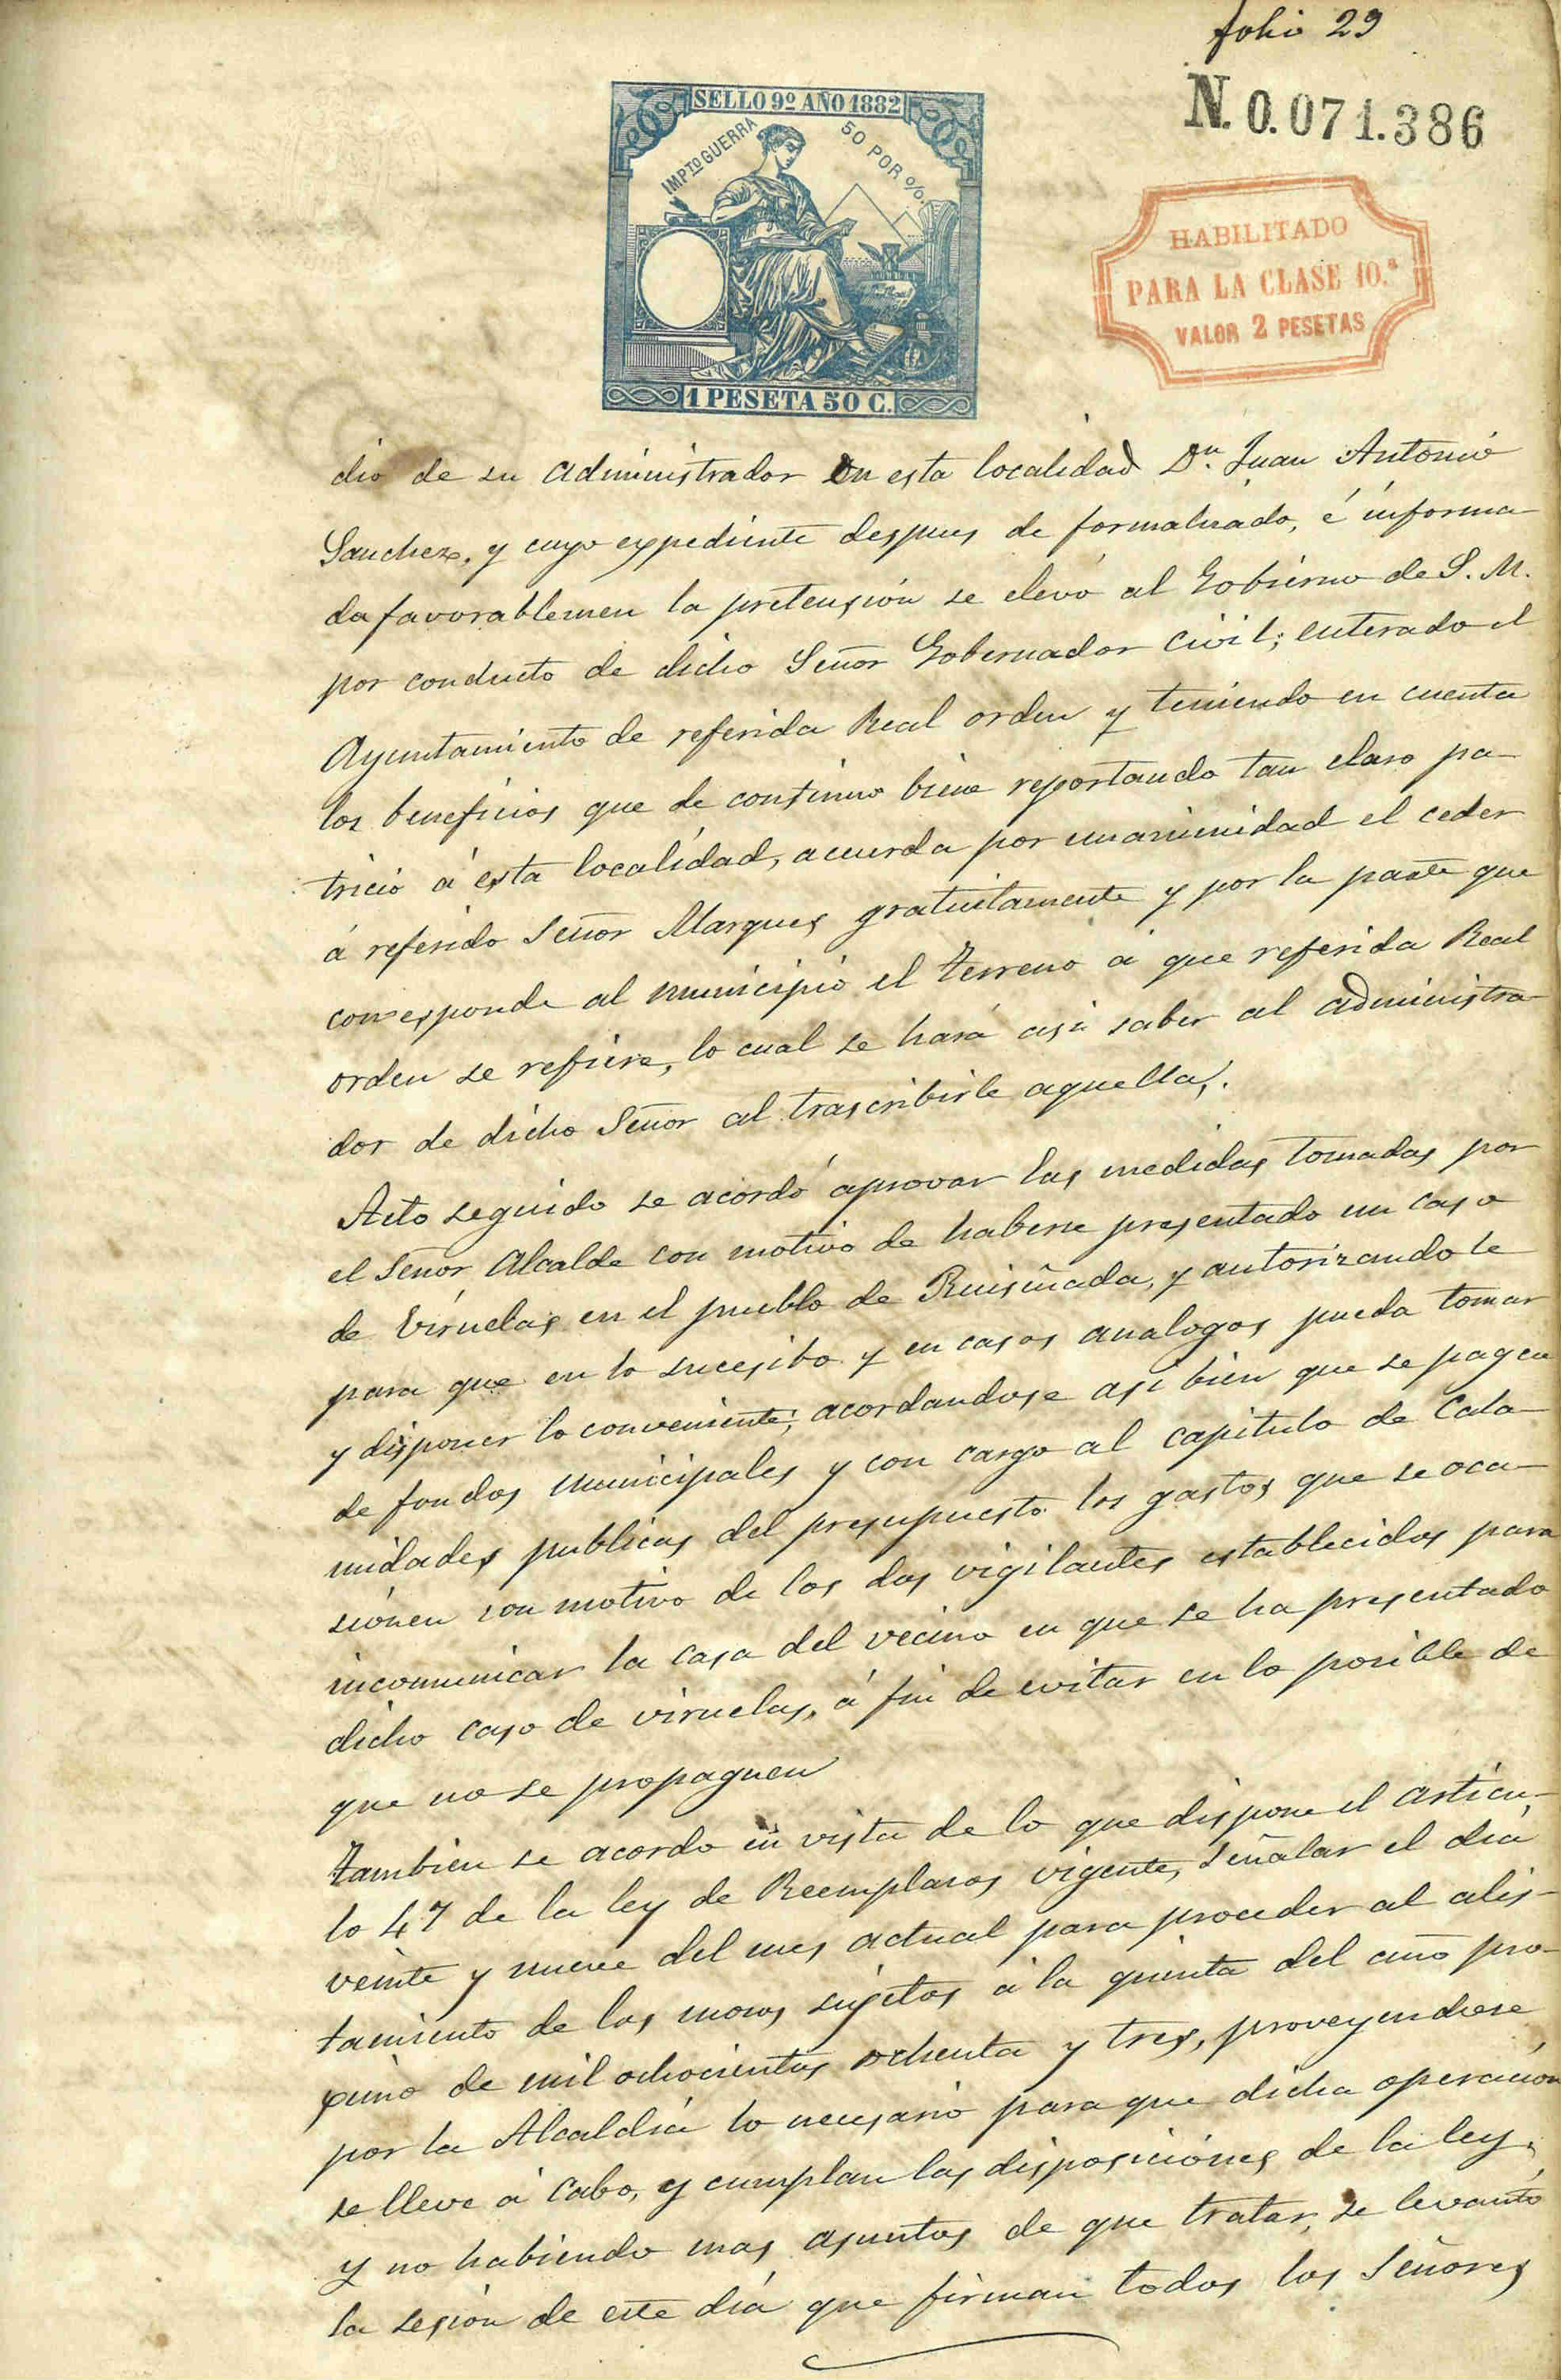 folio 29
N. 0.071.386
SELLO 9º AÑO 1882
IMPTO GUERRA
50 POR %
1 PESETA 50 C.
HABILITADO
PARA LA CLASE 10.ª
VALOR 2 PESETAS
dio de su administrador en esta localidad Dn. Juan Antonio
Sanchez, y cuyo expediente despues de formalizado, é informa
da favorablemen la pretensión se elevó al Gobierno de S. M.
por conducto de dicho Señor Gobernador Civil; enterado el
Ayuntamiento de referida Real orden y teniendo en cuenta
los beneficios que de continuo biene reportando tan claro pa-
tricio á esta localidad, acuerda por unanimidad el ceder
á referido Señor Marques gratuitamente y por la parte que
corresponde al municipio el terreno á que referida Real
orden se refiere, lo cual se hará asi saber al administra-
dor de dicho Señor al trascribirle aquella.
Acto seguido se acordó aprovar las medidas tomadas por
el Señor Alcalde con motivo de haberse presentado un caso
de Viruelas en el pueblo de Ruiseñada, y autorizandole
para que en lo sucesibo y en casos analogos pueda tomar
y disponer lo conveniente; acordandose asi bien que se pagen
de fondos municipales y con cargo al capitulo de Cala-
midades publicas del presupuesto los gastos que se oca-
siónen con motivo de los dos vigilantes establecidos para
incomunicar la casa del vecino en que se ha presentado
dicho caso de viruelas, á fin de evitar en lo posible de
que no se propaguen
Tambien se acordo en vista de lo que dispone el articu-
lo 47 de la ley de Reemplazos vigente, señalar el dia
veinte y nueve del mes actual para proceder al alis-
tamiento de los mozos sujetos á la quinta del año pro-
ximo de mil ochocientos ochenta y tres, proveyendose
por la Alcaldía lo necesario para que dicha operación
se lleve á cabo, y cumplan las disposiciónes de la ley.
Y no habiendo mas asuntos de que tratar, se levantó
la sesión de este día que firman todos los Señores